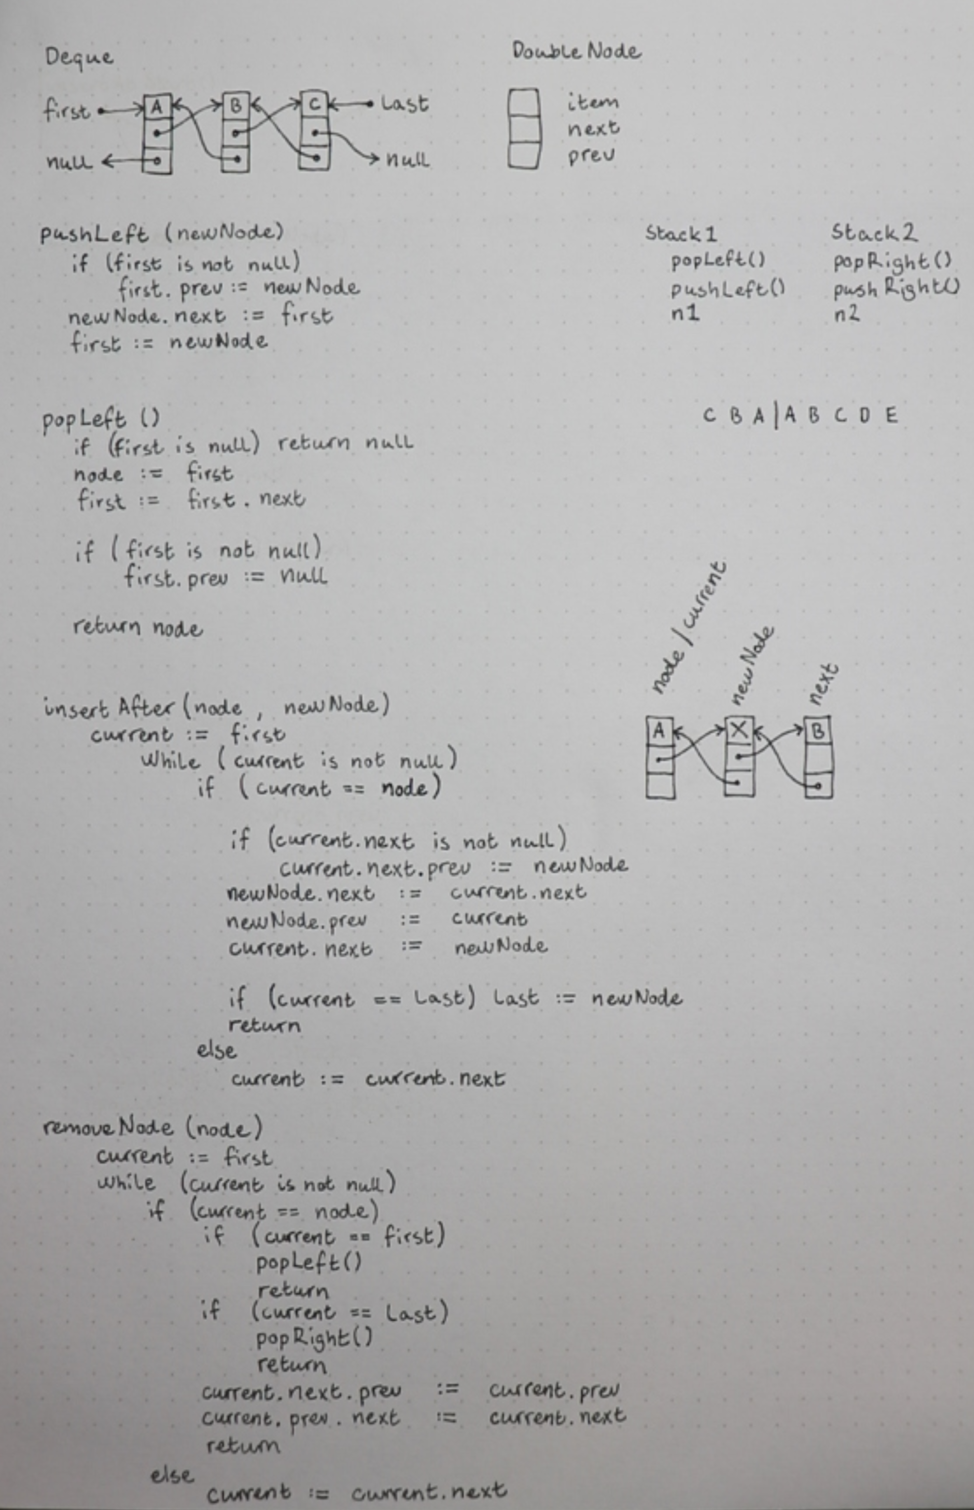 Deque
DoubleNode
first A B C last
null null
item
next
prev
pushLeft (newNode)
if (first is not null)
first.prev := newNode
newNode.next := first
first := newNode
Stack1
popLeft()
pushLeft()
n1
Stack2
popRight()
pushRight()
n2
popLeft ()
if (first is null) return null
node := first
first := first.next
if (first is not null)
first.prev := null
return node
C B A | A B C D E
node / current
newNode
next
A X B
insertAfter (node, newNode)
current := first
while (current is not null)
if (current == node)
if (current.next is not null)
current.next.prev := newNode
newNode.next := current.next
newNode.prev := current
current.next := newNode
if (current == last) last := newNode
return
else
current := current.next
removeNode (node)
current := first
while (current is not null)
if (current == node)
if (current == first)
popLeft()
return
if (current == last)
popRight()
return
current.next.prev := current.prev
current.prev.next := current.next
return
else
current := current.next